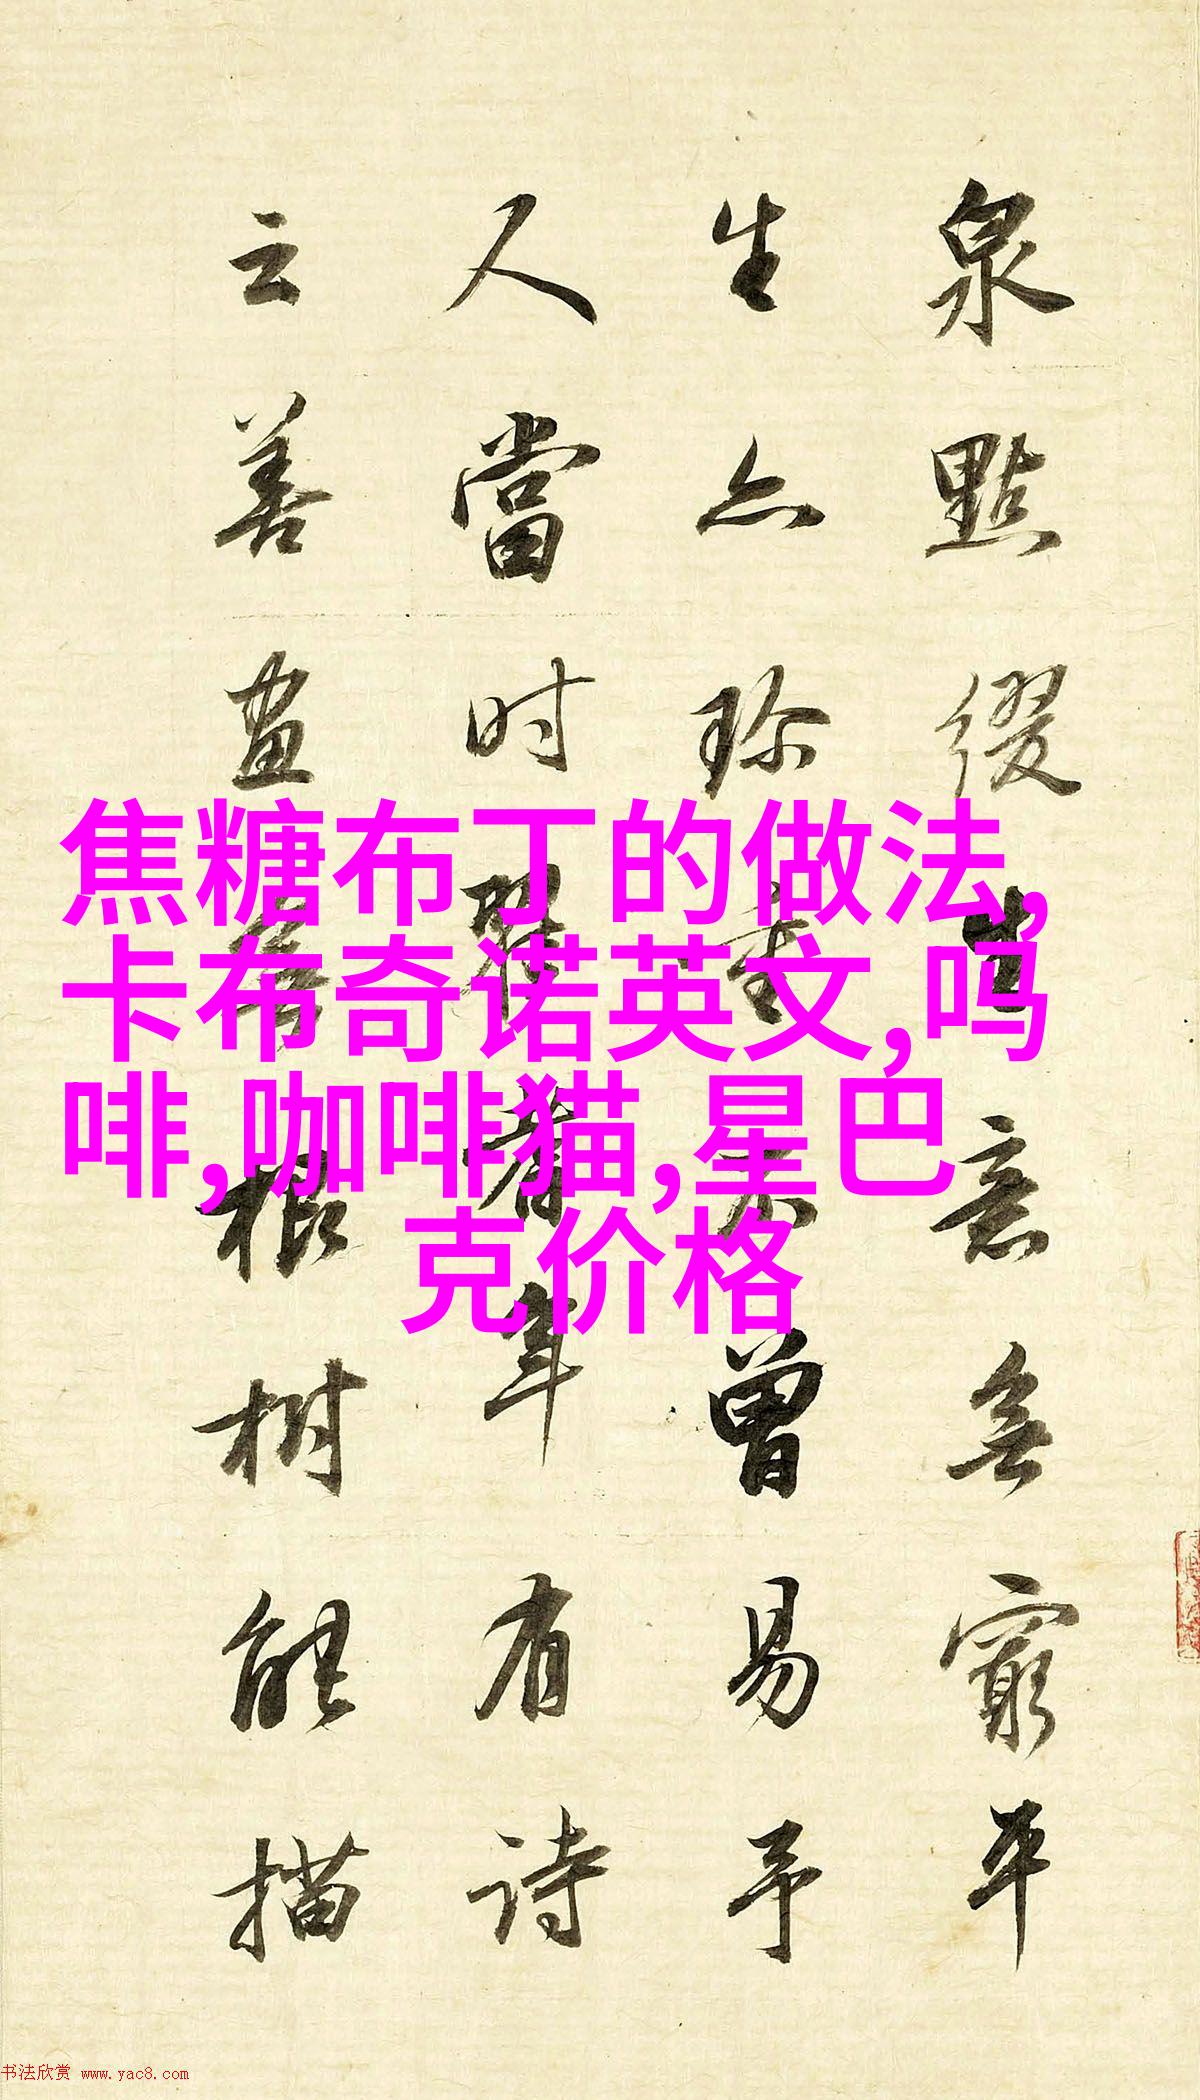 泉點綴生意無窮平
生亦珍重不曾易予
人當时者年有诗
云善畫無根树能描
焦糖布丁的做法,
卡布奇诺英文,吗
啡,咖啡猫,星巴
克价格
书法欣赏 www.yac8.com